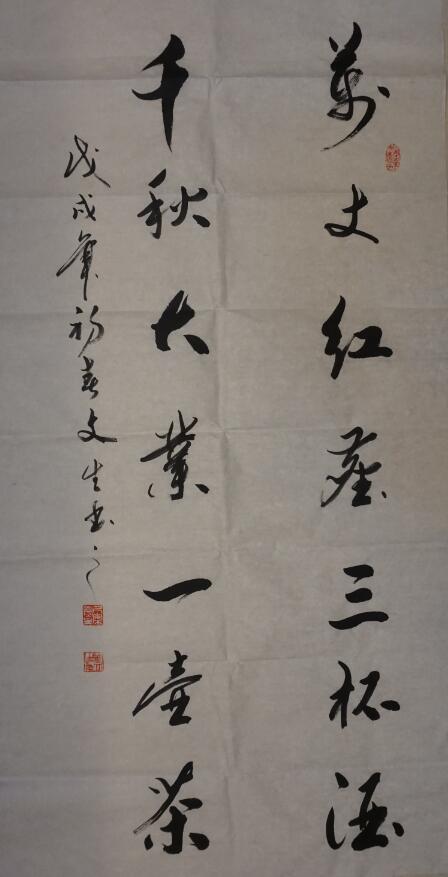 萬丈紅塵三杯酒
千秋大業一壺茶
戊戌年初春文生書之